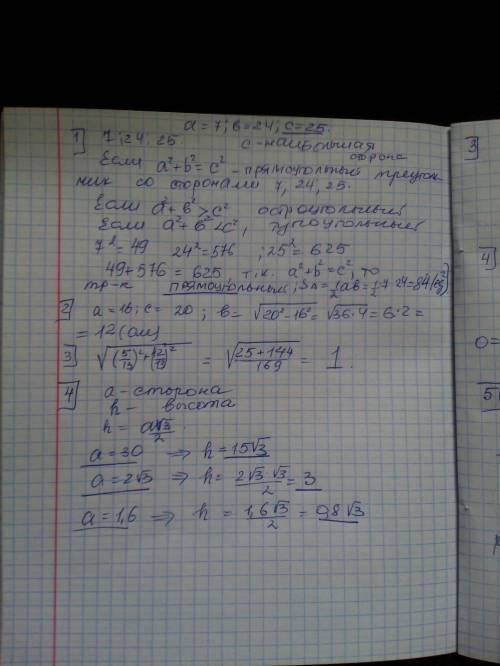 a = 7; в = 24; c = 25.
1] 7; 24; 25. c - наибольшая сторона
Если a² + b² = c² - прямоугольный треуголь
ник со сторонами 7, 24, 25.
Если a² + b² > c² остроугольный
Если a² + b² < c², тупоугольный
7² = 49 24² = 576 ; 25² = 625
49 + 576 = 625, т.к. a² + b² = c², то
тр-к прямоугольный; S△ = 1/2 ab = 1/2 · 7 · 24 = 84
2] a = 16; c = 20; b = √(20² - 16²) = √(36 · 4) = 6 · 2 =
= 12 (см)
3] √((5/13)² + (12/13)²) = √((25 + 144)/169) = 1.
4] a - сторона
h - высота
h = a√3/2.
a = 30 ⇒ h = 15√3
a = 2√3 ⇒ h = 2√3 · √3/2 = 3
a = 1,6 ⇒ h = 1,6√3/2 = 0,8√3
3
4]
0=
5